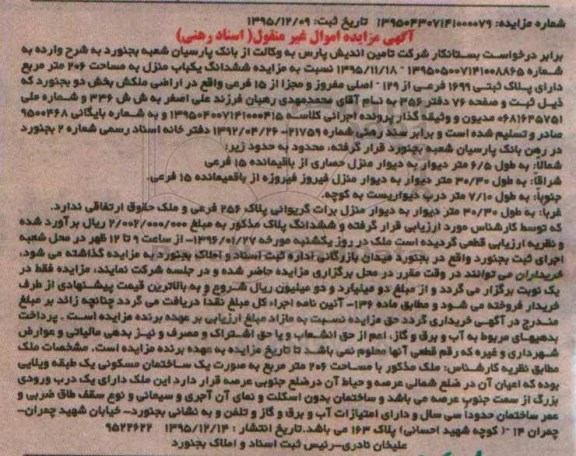 شماره مزایده: ۱۳۹۵۰۴۳۰۷۱۴۱۰۰۰۰۷۹ تاریخ ثبت: ۱۳۹۵/۱۲/۰۹
آگهی مزایده اموال غیر منقول( اسناد رهنی)
برابر درخواست بستانکار شرکت تامین اندیش پارس به وکالت از بانک پارسیان شعبه بجنورد به شرح وارده به
شماره ۱۳۹۵۰۵۰۰۷۱۴۱۰۰۸۸۶۵ - ۱۳۹۵/۱۱/۱۸ نسبت به مزایده ششدانگ یکباب منزل به مساحت ۲۰۶ متر مربع
دارای پلاک ثبتی ۱۶۹۹ فرعی از ۱۲۹ - اصلی مفروز و مجزا از ۱۵ فرعی واقع در اراضی ملکش بخش دو بجنورد که
ذیل ثبت و صفحه ۷۶ دفتر ۳۵۶ به نام آقای محمدمهدی رهبان فرزند علی اصغر به ش ش ۳۳۶ و شماره ملی
۰۶۸۱۶۴۵۷۵۱ مدیون و وثیقه گذار پرونده اجرائی کلاسه ۱۳۹۵۰۴۰۰۷۱۴۱۰۰۰۴۱۵ و به شماره بایگانی ۹۵۰۰۴۶۸
صادر و تسلیم شده است و برابر سند رهنی شماره ۲۱۷۵۹- ۱۳۹۲/۰۴/۲۶ دفتر خانه اسناد رسمی شماره ۲ بجنورد
در رهن بانک پارسیان شعبه بجنورد قرار گرفته، محدود به حدود زیر:
شمالاً: به طول ۶/۵ متر دیوار به دیوار منزل حصاری از باقیمانده ۱۵ فرعی
شراقاً: به طول ۳۰/۳۰ متر دیوار به دیوار منزل فیروز فیروزه از باقمیعانده ۱۵ فرعی.
جنوباً: به طول ۷/۱۰ متر درب دیواریست به کوچه.
غرباً: به طول ۳۰/۳۰ متر دیوار به دیوار منزل برات گریوانی پلاک ۲۵۶ فرعی و ملک حقوق ارتفاقی ندارد.
که توسط کارشناس مورد ارزیابی قرار گرفته و ششدانگ پلاک مذکور به مبلغ ۲/۰۰۲/۰۰۰/۰۰۰ ریال برآورد شده
و نظریه ارزیابی قطعی گردیده است ملک در روز یکشنبه مورخه ۱۳۹۶/۰۱/۲۷- از ساعت ۹ تا ۱۲ ظهر در محل شعبه
اجرای ثبت بجنورد واقع در بجنورد میدان بازرگانی اداره ثبت اسناد و املاک بجنورد به مزایده گذاشته می شود،
خریداران می توانند در وقت مقرر در محل برگزاری مزایده حاضر شده و در جلسه شرکت نمایند، مزایده فقط در
یک نوبت برگزار می گردد و از مبلغ دو میلیارد و دو میلیون ریال شروع و به بالاترین قیمت پیشنهادی از طرف
خریدار فروخته می شود و مطابق ماده ۱۳۶- آئین نامه اجراء کل مبلغ نقداً دریافت می گردد چنانچه زائد بر مبلغ
مندرج در آگهی خریداری گردد حق مزایده نسبت به مازاد مبلغ ارزیابی بر عهده برنده مزایده است . پرداخت
بدهیهای مربوط به آب و برق و گاز، اعم از حق انشعاب و یا حق اشتراک و مصرف و نیز بدهی مالیاتی و عوارض
شهرداری و غیره که رقم قطعی آنها معلوم نمی باشد تا تاریخ مزایده به عهده برنده مزایده است. مشخصات ملک
مطابق نظریه کارشناس: ملک مذکور با مساحت ۲۰۶ متر مربع به صورت یک ساختمان مسکونی یک طبقه ویلایی
بوده که اعیان آن در ضلع شمالی عرصه و حیاط آن درضلع جنوبی عرصه قرار دارد این ملک دارای یک درب ورودی
بزرگ از سمت جنوب عرصه می باشد و ساختمان بدون اسکلت و نمای آن آجری و سیمانی و نوع سقف طاق ضربی و
عمر ساختمان حدوداً سی سال و دارای امتیازات آب و برق و گاز و تلفن و به نشانی بجنورد– خیابان شهید چمران–
چمران ۱۴ -( کوچه شهید احسانی) پلاک ۱۶۳ می باشد.تاریخ انتشار : ۱۳۹۵/۱۲/۱۴ ۹۵۲۲۶۲۲
علیخان نادری-رئیس ثبت اسناد و املاک بجنورد